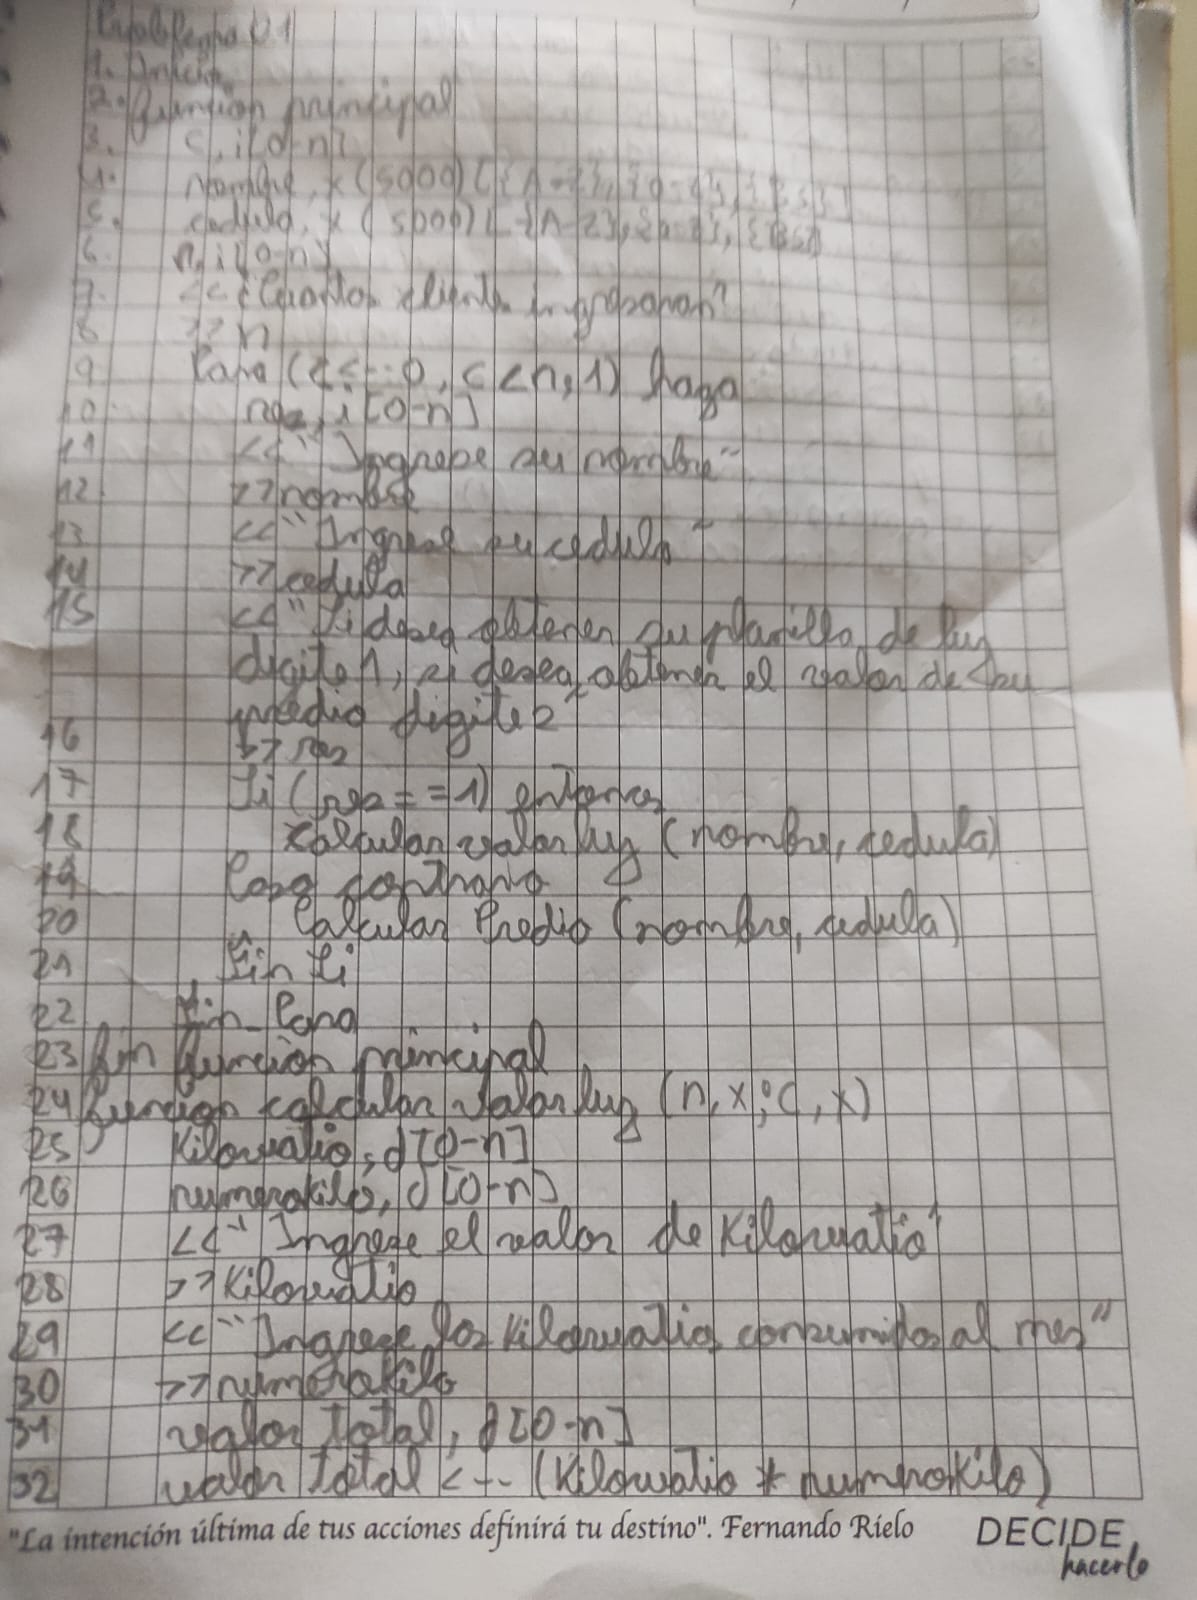 1. Inicio
2. función principal
3. c, i[0-n]
4. nombre, x (5000) [{A-Z}, {a-z}, {ESP}]
5. cedula, x (5000) [{A-Z}, {a-z}, {ESP}]
6. n, i[0-n]
7. << "Cuantos clientes ingresaran"
8 >> n
9 Para (c <-- 0, c < n, 1) haga
10 res, i [0-n]
11 << "Ingrese su nombre"
12 >> nombre
13 << "Ingrese su cedula"
14 >> cedula
15 << "Si desea obtener su planilla de luz
digite 1, si desea obtener el valor de su
predio digite 2"
16 >> res
17 Si (res == 1) entonces
18 calcular valor luz (nombre, cedula)
19 Caso contrario
20 Calcular Predio (nombre, cedula)
21 Fin Si
22 Fin_Para
23 Fin función principal
24 función calcular valor luz (n, x; c, x)
25 Kilowatio, d [0-n]
26 numerokilo, d [0-n]
27 << "Ingrese el valor de Kilowatio"
28 >> Kilowatio
29 << "Ingrese los kilowatios consumidos al mes"
30 >> numerokilo
31 valor total, d [0-n]
32 valor total <-- (Kilowatio * numerokilo)
"La intención última de tus acciones definirá tu destino". Fernando Rielo DECIDE,
hacerlo